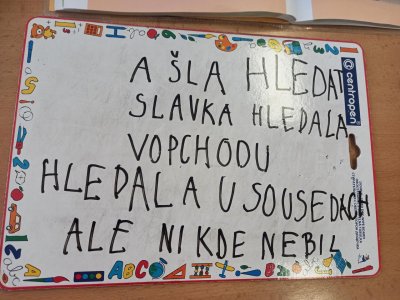 A ŠLA HLEDAT
SLAVKA HLEDALA
VOPCHODU
HLEDALA U SOUSEDACH
ALE NIKDE NEBIL
centropen